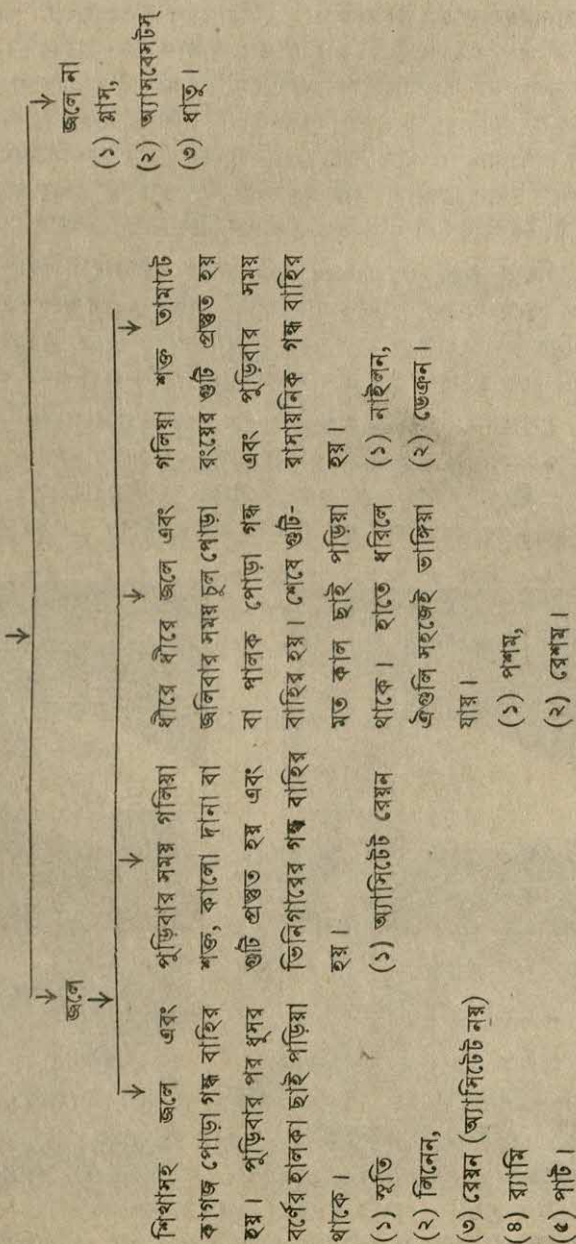 জলে
জলে না
(১) গ্লাস,
(২) অ্যাসবেসটস্
(৩) ধাতু।
শিখাসহ জলে এবং
কাগজ পোড়া গন্ধ বাহির
হয়। পুড়িবার পর ধূসর
বর্ণের হালকা ছাই পড়িয়া
থাকে।
(১) সূতি
(২) লিনেন,
(৩) রেয়ন (অ্যাসিটেট নয়)
(৪) র‍্যামি
(৫) পাট।
পুড়িবার সময় গলিয়া
শক্ত, কালো দানা বা
গুটি প্রস্তুত হয় এবং
ভিনিগারের গন্ধ বাহির
হয়।
(১) অ্যাসিটেট রেয়ন
ধীরে ধীরে জলে এবং
জলিবার সময় চুল পোড়া
বা পালক পোড়া গন্ধ
বাহির হয়। শেষে গুটি-
মত কাল ছাই পড়িয়া
থাকে। হাতে ধরিলে
ঐগুলি সহজেই ভাঙ্গিয়া
যায়।
(১) পশম,
(২) রেশম।
গলিয়া শক্ত তামাটে
রংয়ের গুটি প্রস্তুত হয়
এবং পুড়িবার সময়
রাসায়নিক গন্ধ বাহির
হয়।
(১) নাইলন,
(২) ডেক্রন।